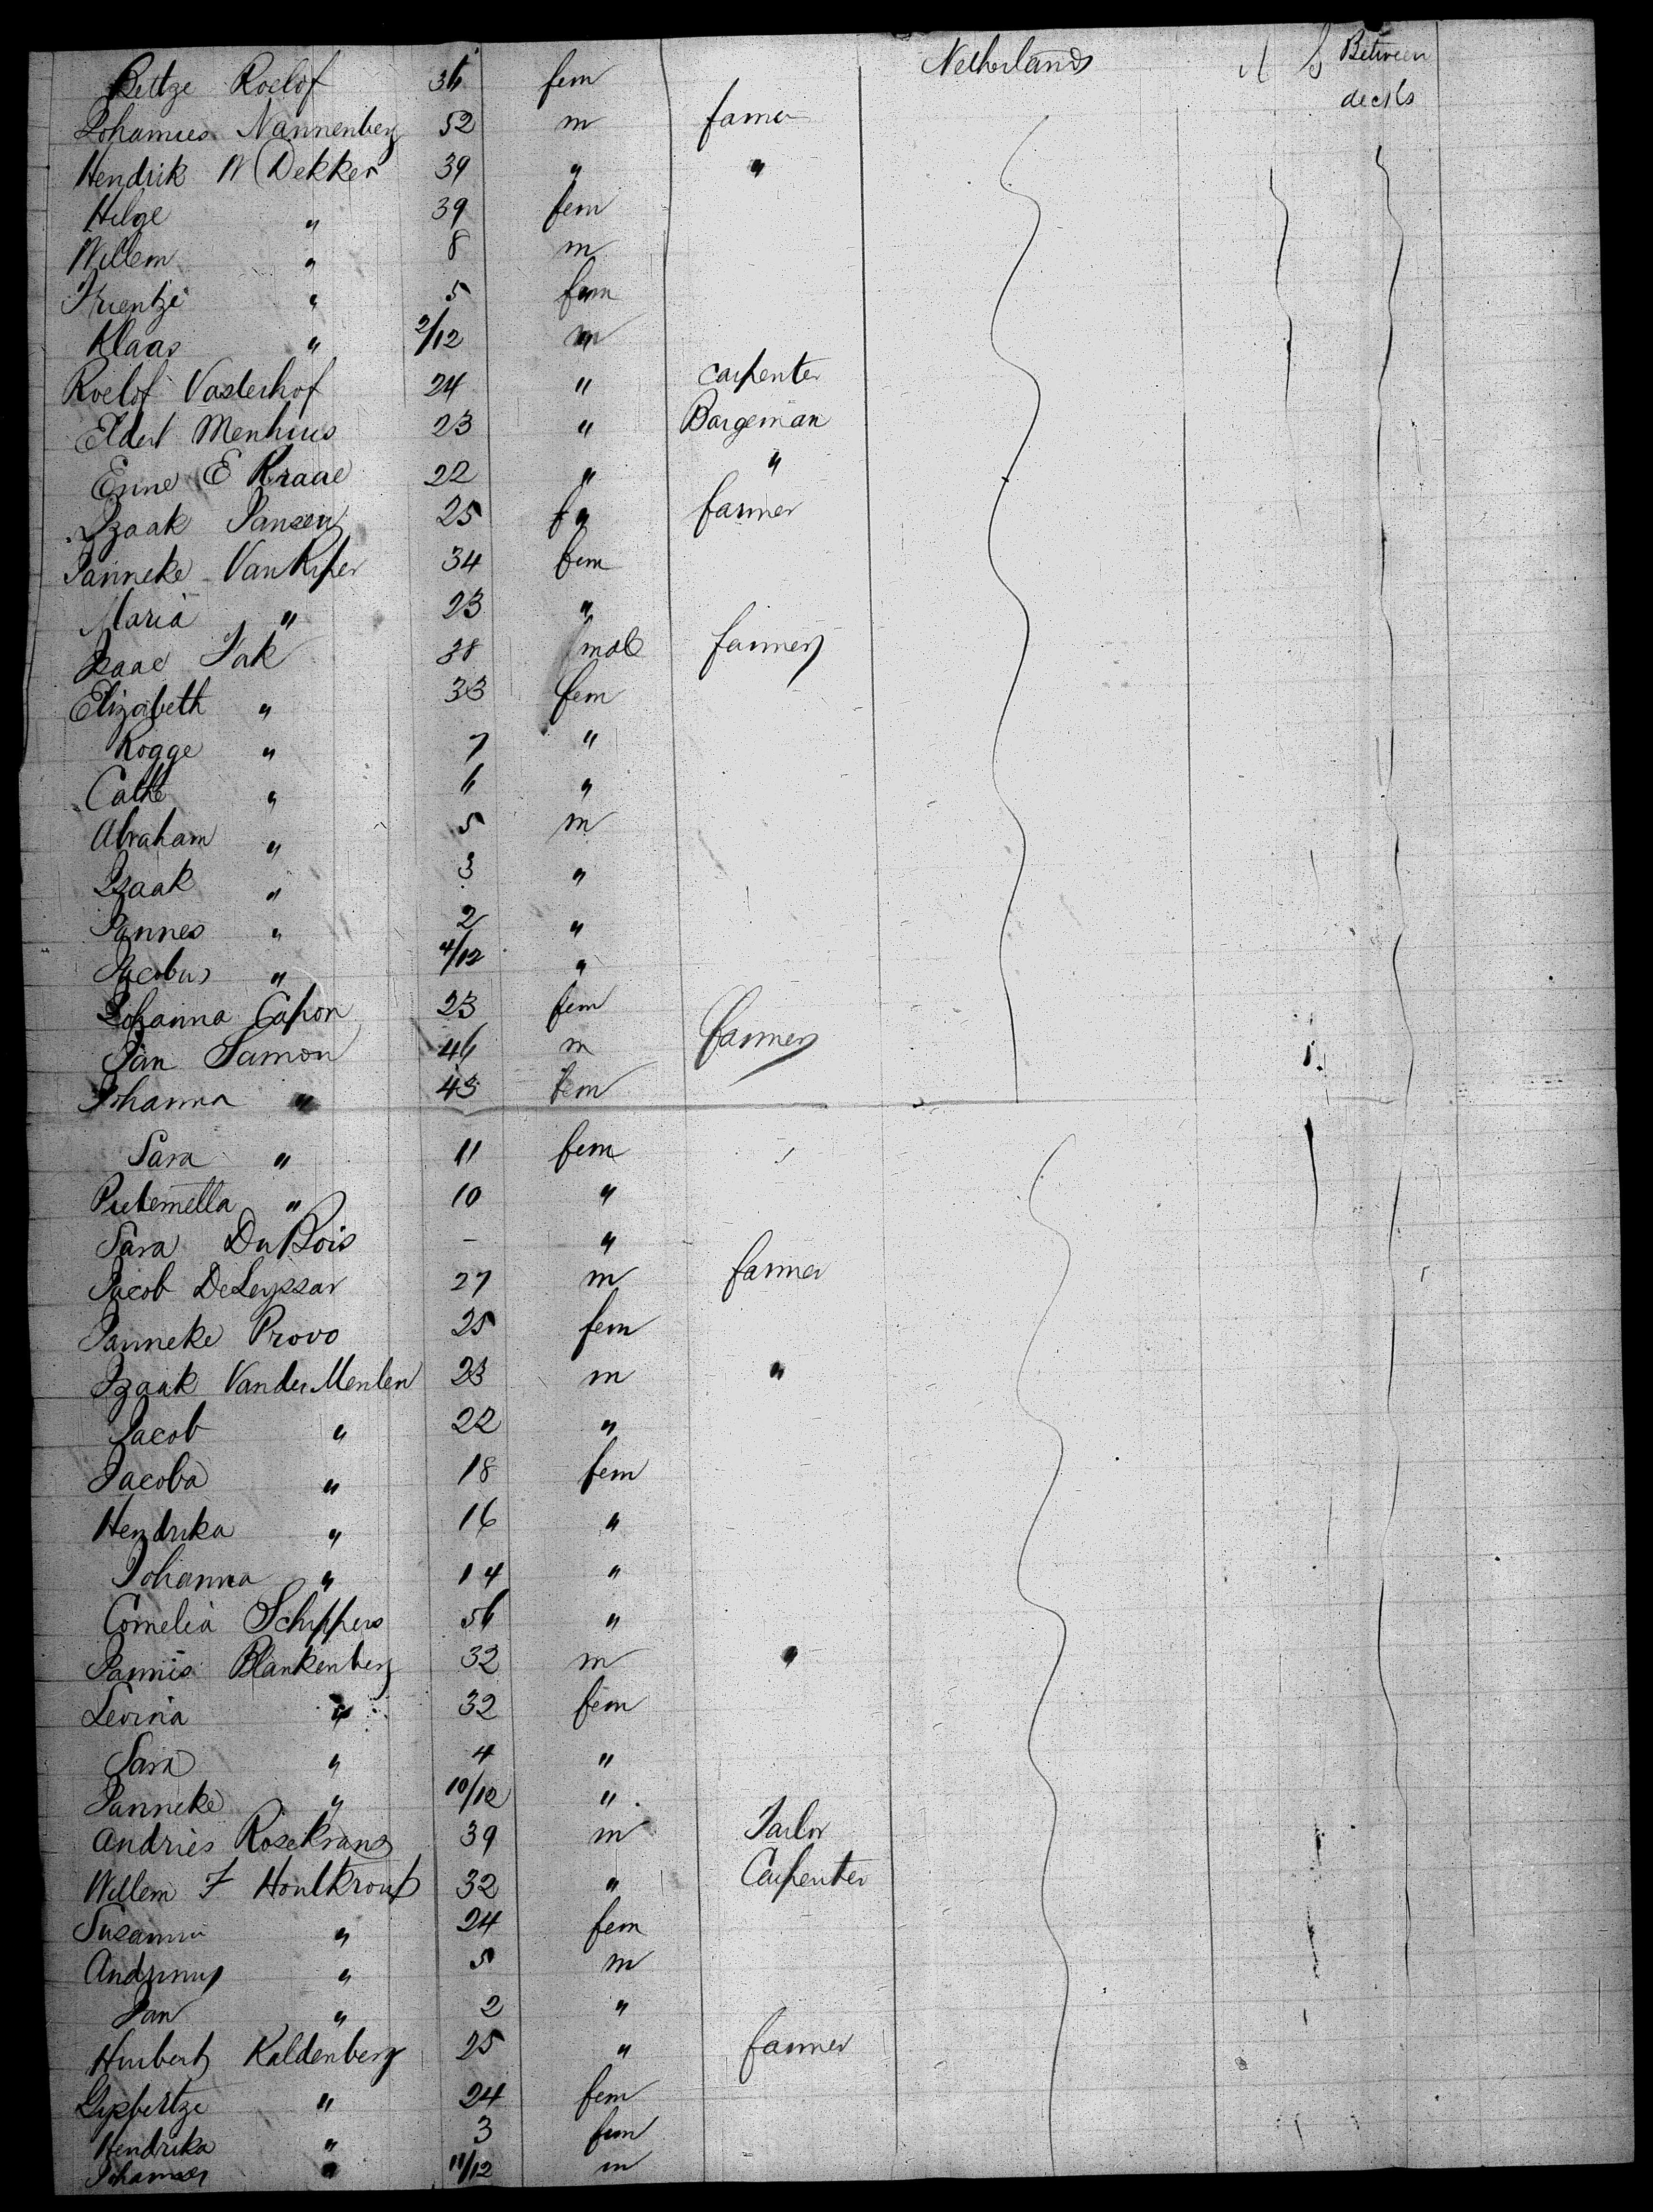 Bettze Roelof 36 fem Netherlands U S Between decks
Johannes Nannenberg 52 m farmer
Hendrik W Dekker 39 " "
Hilge " 39 fem
Willem " 8 m
Trientze " 5 fem
Klaas " 2/12 m
Roelof Vasterhof 24 " carpenter
Eldert Menhuis 23 " Bargeman
Enne E Kraae 22 " "
Izaak Jansen 25 " farmer
Janneke VanRiper 34 fem
Maria " 23 "
Izaac Tak 38 male farmer
Elizabeth " 33 fem
Rogge " 7 "
Cathe " 6 "
Abraham " 5 m
Izaak " 3 "
Jannes " 2 "
Jacobus " 4/12 "
Johanna Capon 23 fem
Jan Samon 46 m farmer
Johanna " 43 fem
Sara " 11 fem
" 10 "
Sara DuBois – "
Jacob DeLeyssar 27 m farmer
Janneke Provo 25 fem
Izaak Van der Menlen 23 m "
Jacob " 22 "
Jacoba " 18 fem
Hendrika " 16 "
Johanna " 14 "
Cornelia Schippers 56 "
Jannis Blankenberg 32 m "
Levina " 32 fem
Sara " 4 "
Janneke " 10/12 "
Andries Rosekrans 39 m Tailor
Willem F Houtkroup 32 " Carpenter
Susanna " 24 fem
" 5 m
Jan " 2 "
Huibert Kaldenberg 25 " farmer
Gysbertze " 24 fem
Hendrika " 3 fem
Johannes " 11/12 m